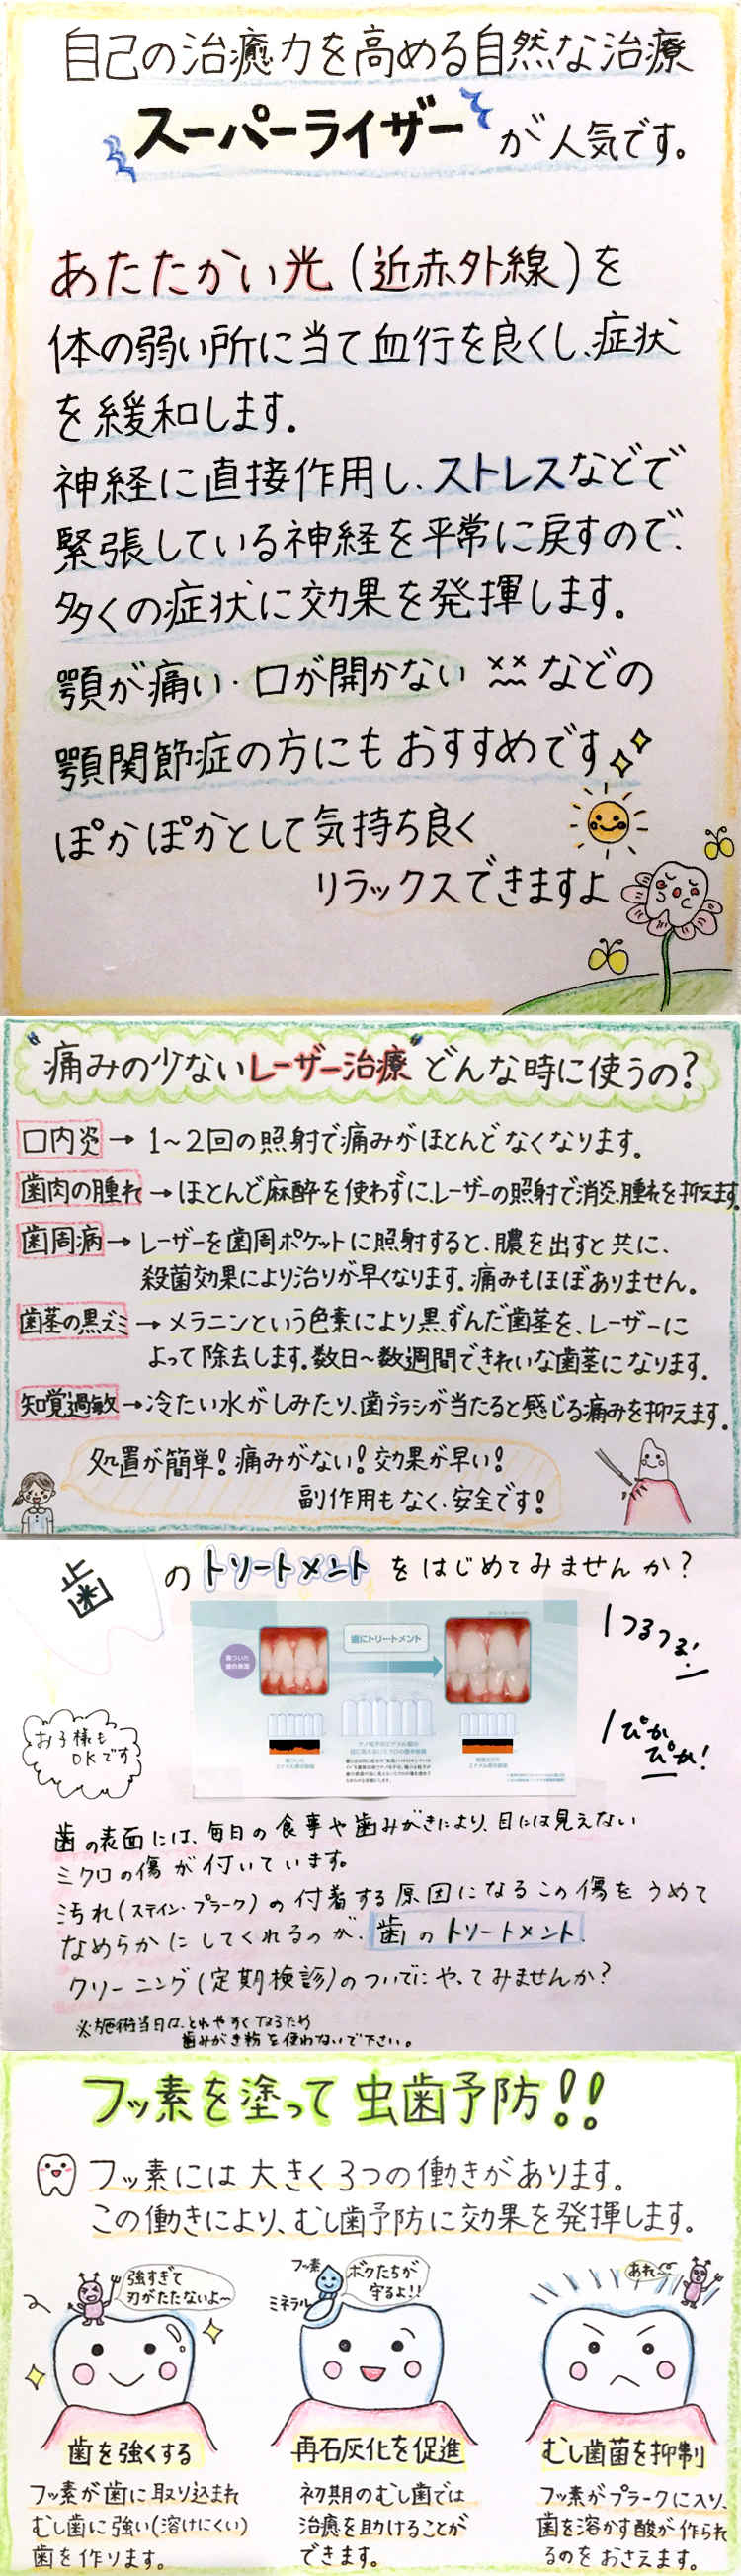 自己の治癒力を高める自然な治療
スーパーライザーが人気です。
あたたかい光(近赤外線)を
体の弱い所に当て血行を良くし、症状
を緩和します。
神経に直接作用し、ストレスなどで
緊張している神経を平常に戻すので、
多くの症状に効果を発揮します。
顎が痛い・口が開かない などの
顎関節症の方にもおすすめです
ぽかぽかとして気持ち良く
リラックスできますよ
痛みの少ないレーザー治療 どんな時に使うの?
口内炎→1~2回の照射で痛みがほとんどなくなります。
歯肉の腫れ→ほとんど麻酔を使わずに、レーザーの照射で消炎、腫れを抑えます。
歯周病→レーザーを歯周ポケットに照射すると、膿を出すと共に、
殺菌効果により治りが早くなります。痛みもほぼありません。
歯茎の黒ズミ→メラニンという色素により黒ずんだ歯茎を、レーザーに
よって除去します。数日~数週間できれいな歯茎になります。
知覚過敏→冷たい水がしみたり、歯ブラシが当たると感じる痛みを抑えます。
処置が簡単!痛みがない!効果が早い!
副作用もなく、安全です!
歯のトリートメントをはじめてみませんか?
歯にトリートメント
つるつる!
ぴか
ぴか!
お子様も
OKです
歯の表面には、毎日の食事や歯みがきにより、目には見えない
ミクロの傷が付いています。
汚れ(ステイン・プラーク)の付着する原因になるこの傷をうめて
なめらかにしてくれるのが、歯のトリートメント。
クリーニング(定期検診)のついでにやってみませんか?
※施術当日は、とれやすくなるため
歯みがき粉を使わないで下さい。
フッ素を塗って虫歯予防!!
フッ素には大きく3つの働きがあります。
この働きにより、むし歯予防に効果を発揮します。
強すぎて
刃がたたないよ~
フッ素
ミネラル
ボクたちが
守るよ!!
あれ~
歯を強くする
フッ素が歯に取り込まれ
むし歯に強い(溶けにくい)
歯を作ります。
再石灰化を促進
初期のむし歯では
治癒を助けることが
できます。
むし歯菌を抑制
フッ素がプラークに入り、
歯を溶かす酸が作られ
るのをおさえます。